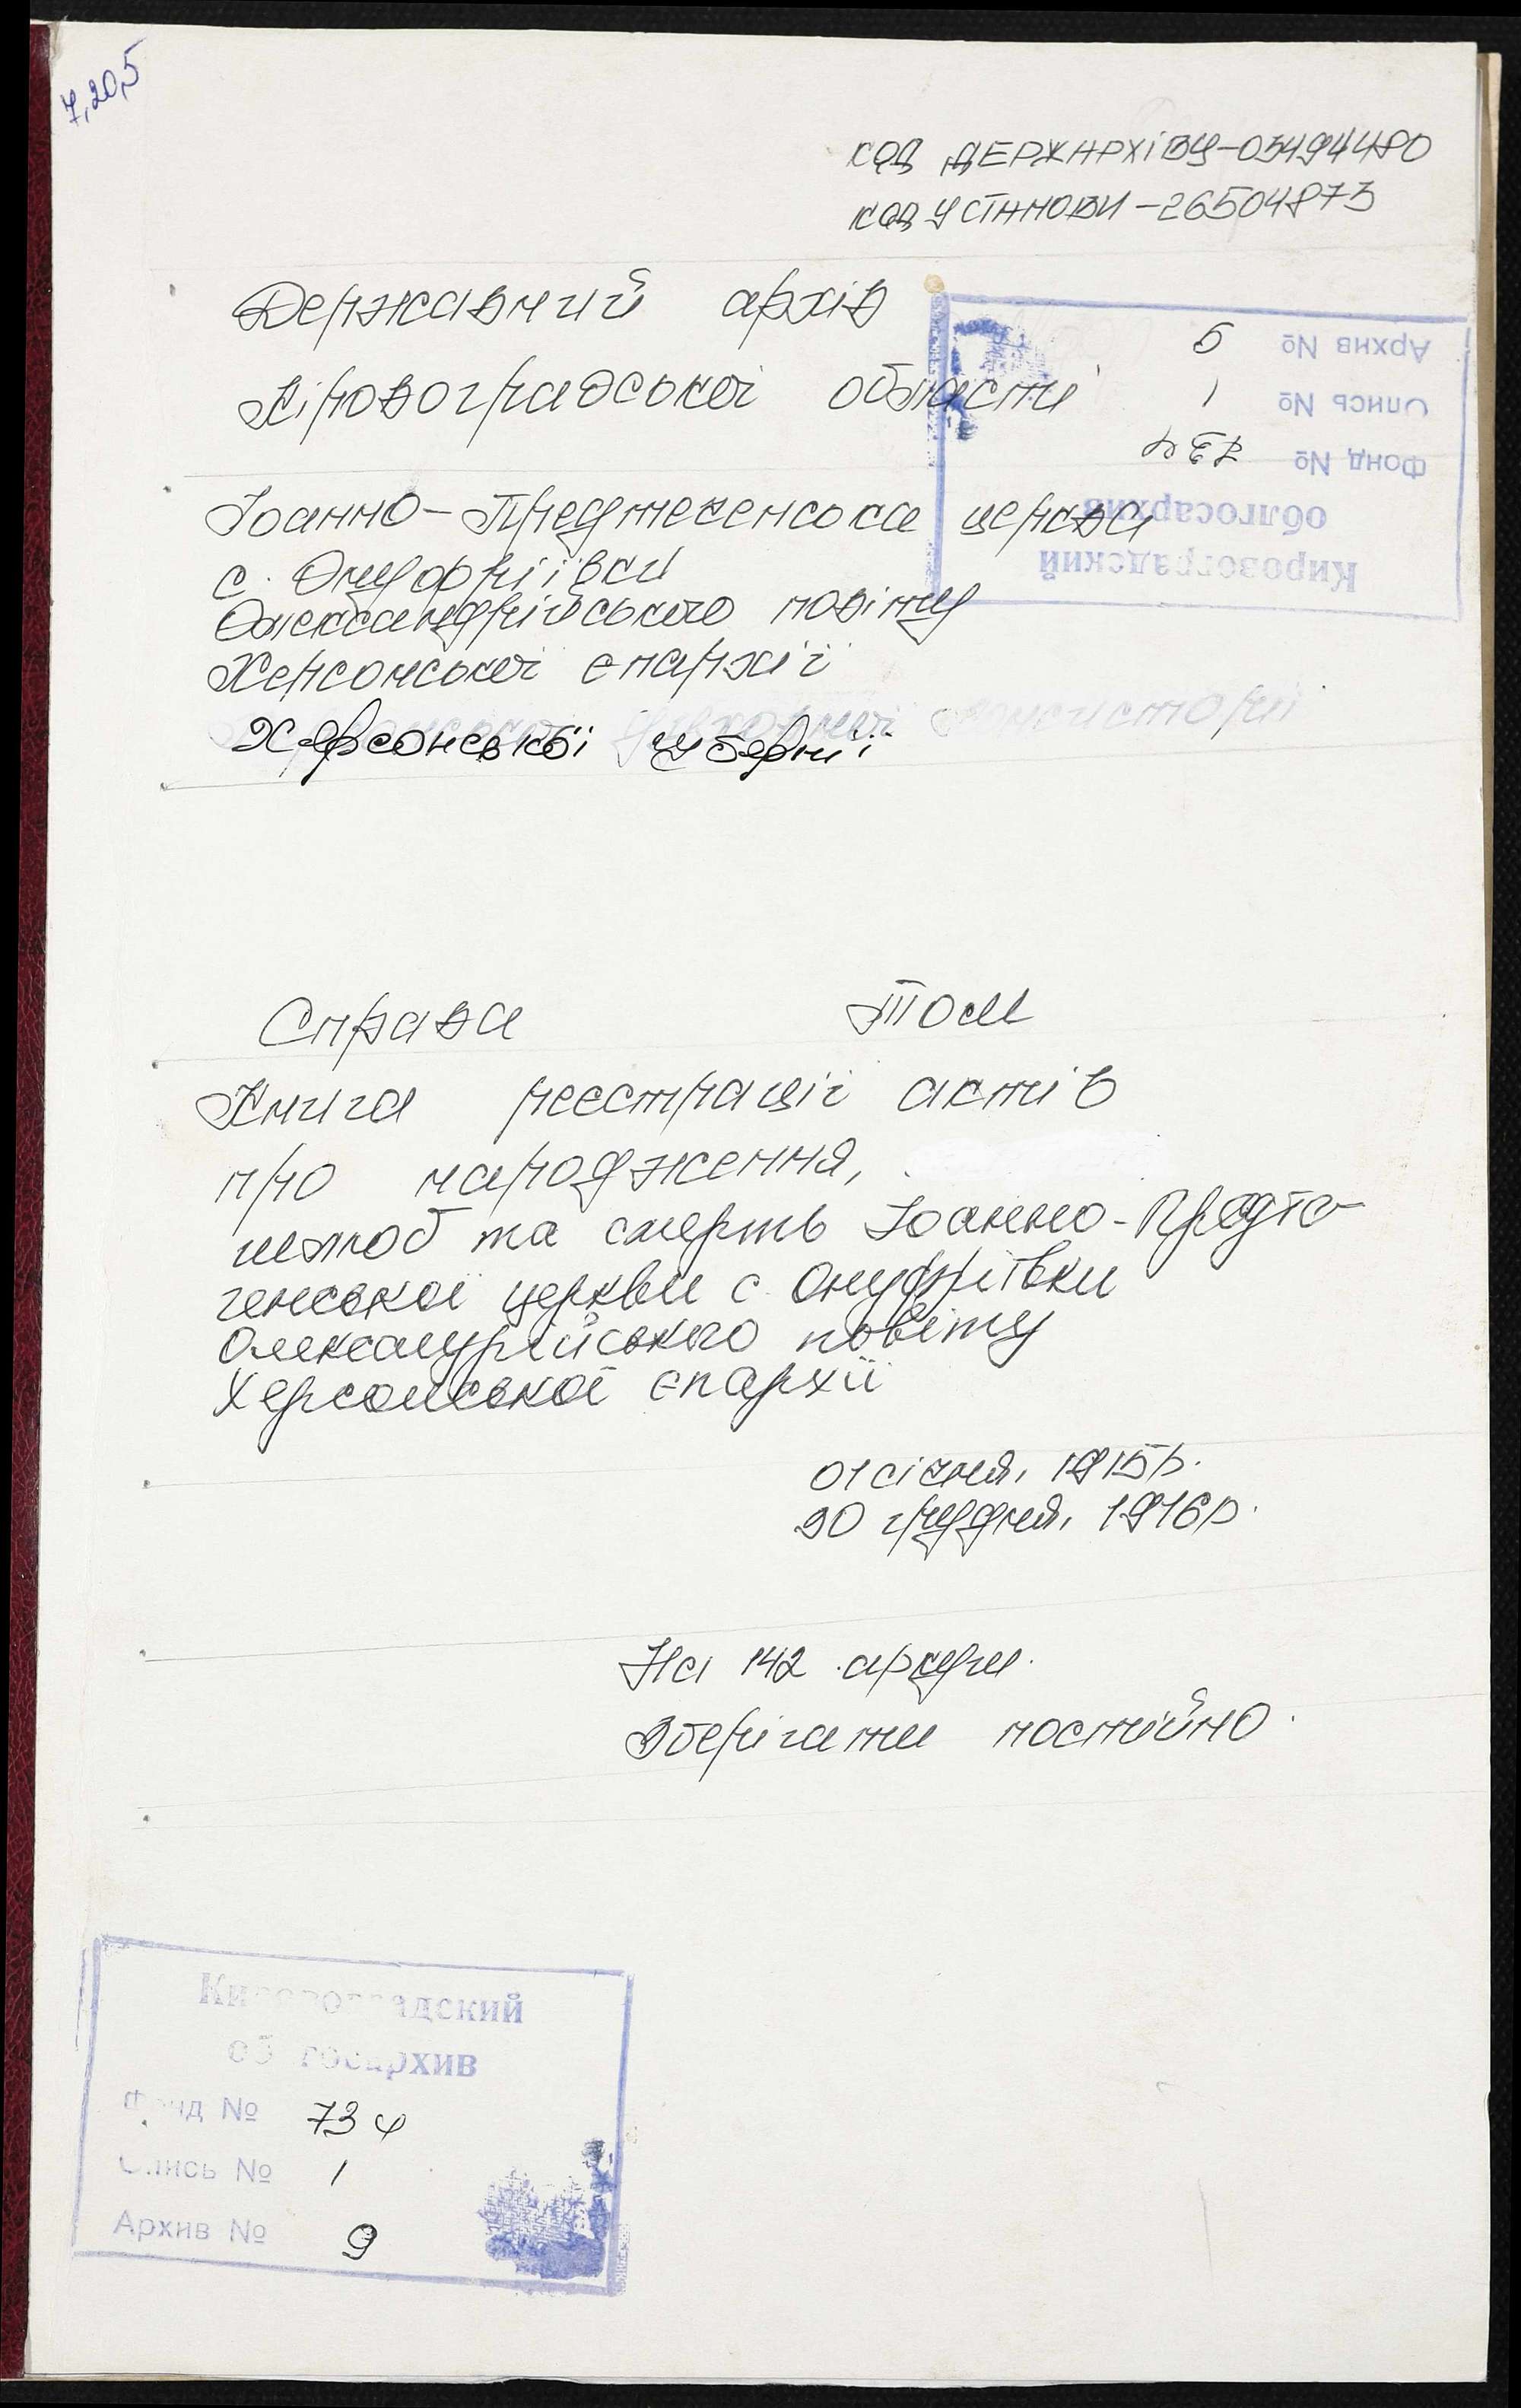 7,20,5
код ДЕРЖАРХіВУ-03494480
код УСТАНОВИ-26504873
Державний архів
Кіровоградської області
Архив № 9
Опись № 1
Фонд № 73ф
облгосархив
Кировоградский
Іоанно-Предтеченська церква
с. Онуфріївки
Олександрійського повіту
Херсонської єпархії
Херсонської губернії
Справа Том
Книга реєстрації актів
про народження,
шлюб та смерть Іоанно-Предте-
ченської церкви с. Онуфріївки
Олександрійського повіту
Херсонської єпархії
01 січня, 1915р.
30 грудня, 1916р.
На 142 аркуш.
Зберігати постійно.
Кировоградский
облгосархив
Фонд № 73ф
Опись № 1
Архив № 9